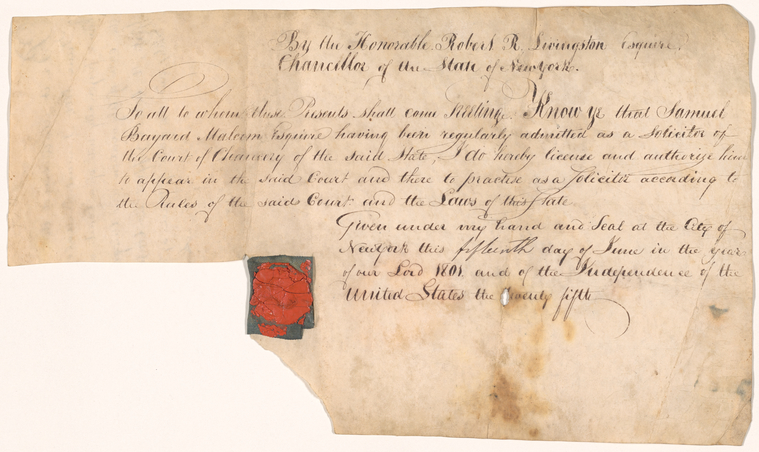 By the Honorable Robert R. Livingston Esquire.
Chancellor of the State of New York.
To all to whom these Presents shall come Greeting. Know ye that Samuel
Bayard Malcom Esquire having been regularly admitted as a Solicitor of
the Court of Chancery of the said State, I do hereby license and authorize him
to appear in the said Court and there to practise as a Solicitor according to
the Rules of the said Court and the Laws of this State.
Given under my hand and Seal at the City of
New York this fifteenth day of June in the year
of our Lord 1801 and of the Independence of the
United States the twenty fifth